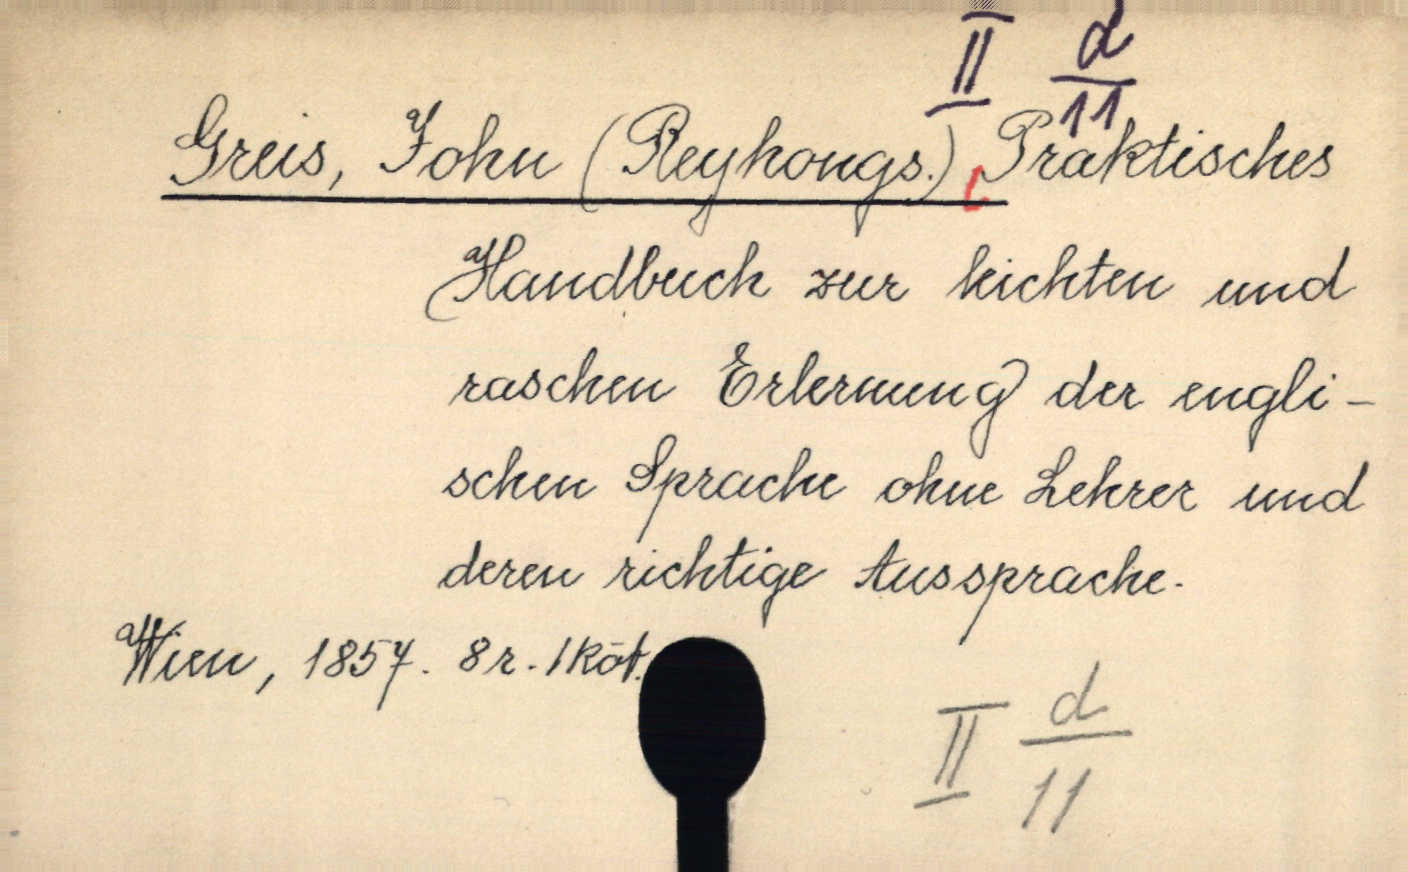 II d/11
Greis, John (Reyhongs.) Praktisches
Handbuch zur leichten und
raschen Erlernung der engli-
schen Sprache ohne Lehrer und
deren richtige Aussprache.
Wien, 1857. 8r. 1 köt.
II d/11